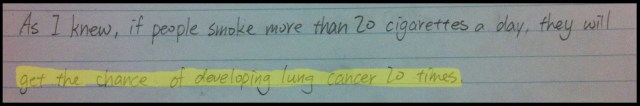 As I knew, if people smoke more than 20 cigarettes a day, they will
get the chance of developing lung cancer 20 times.